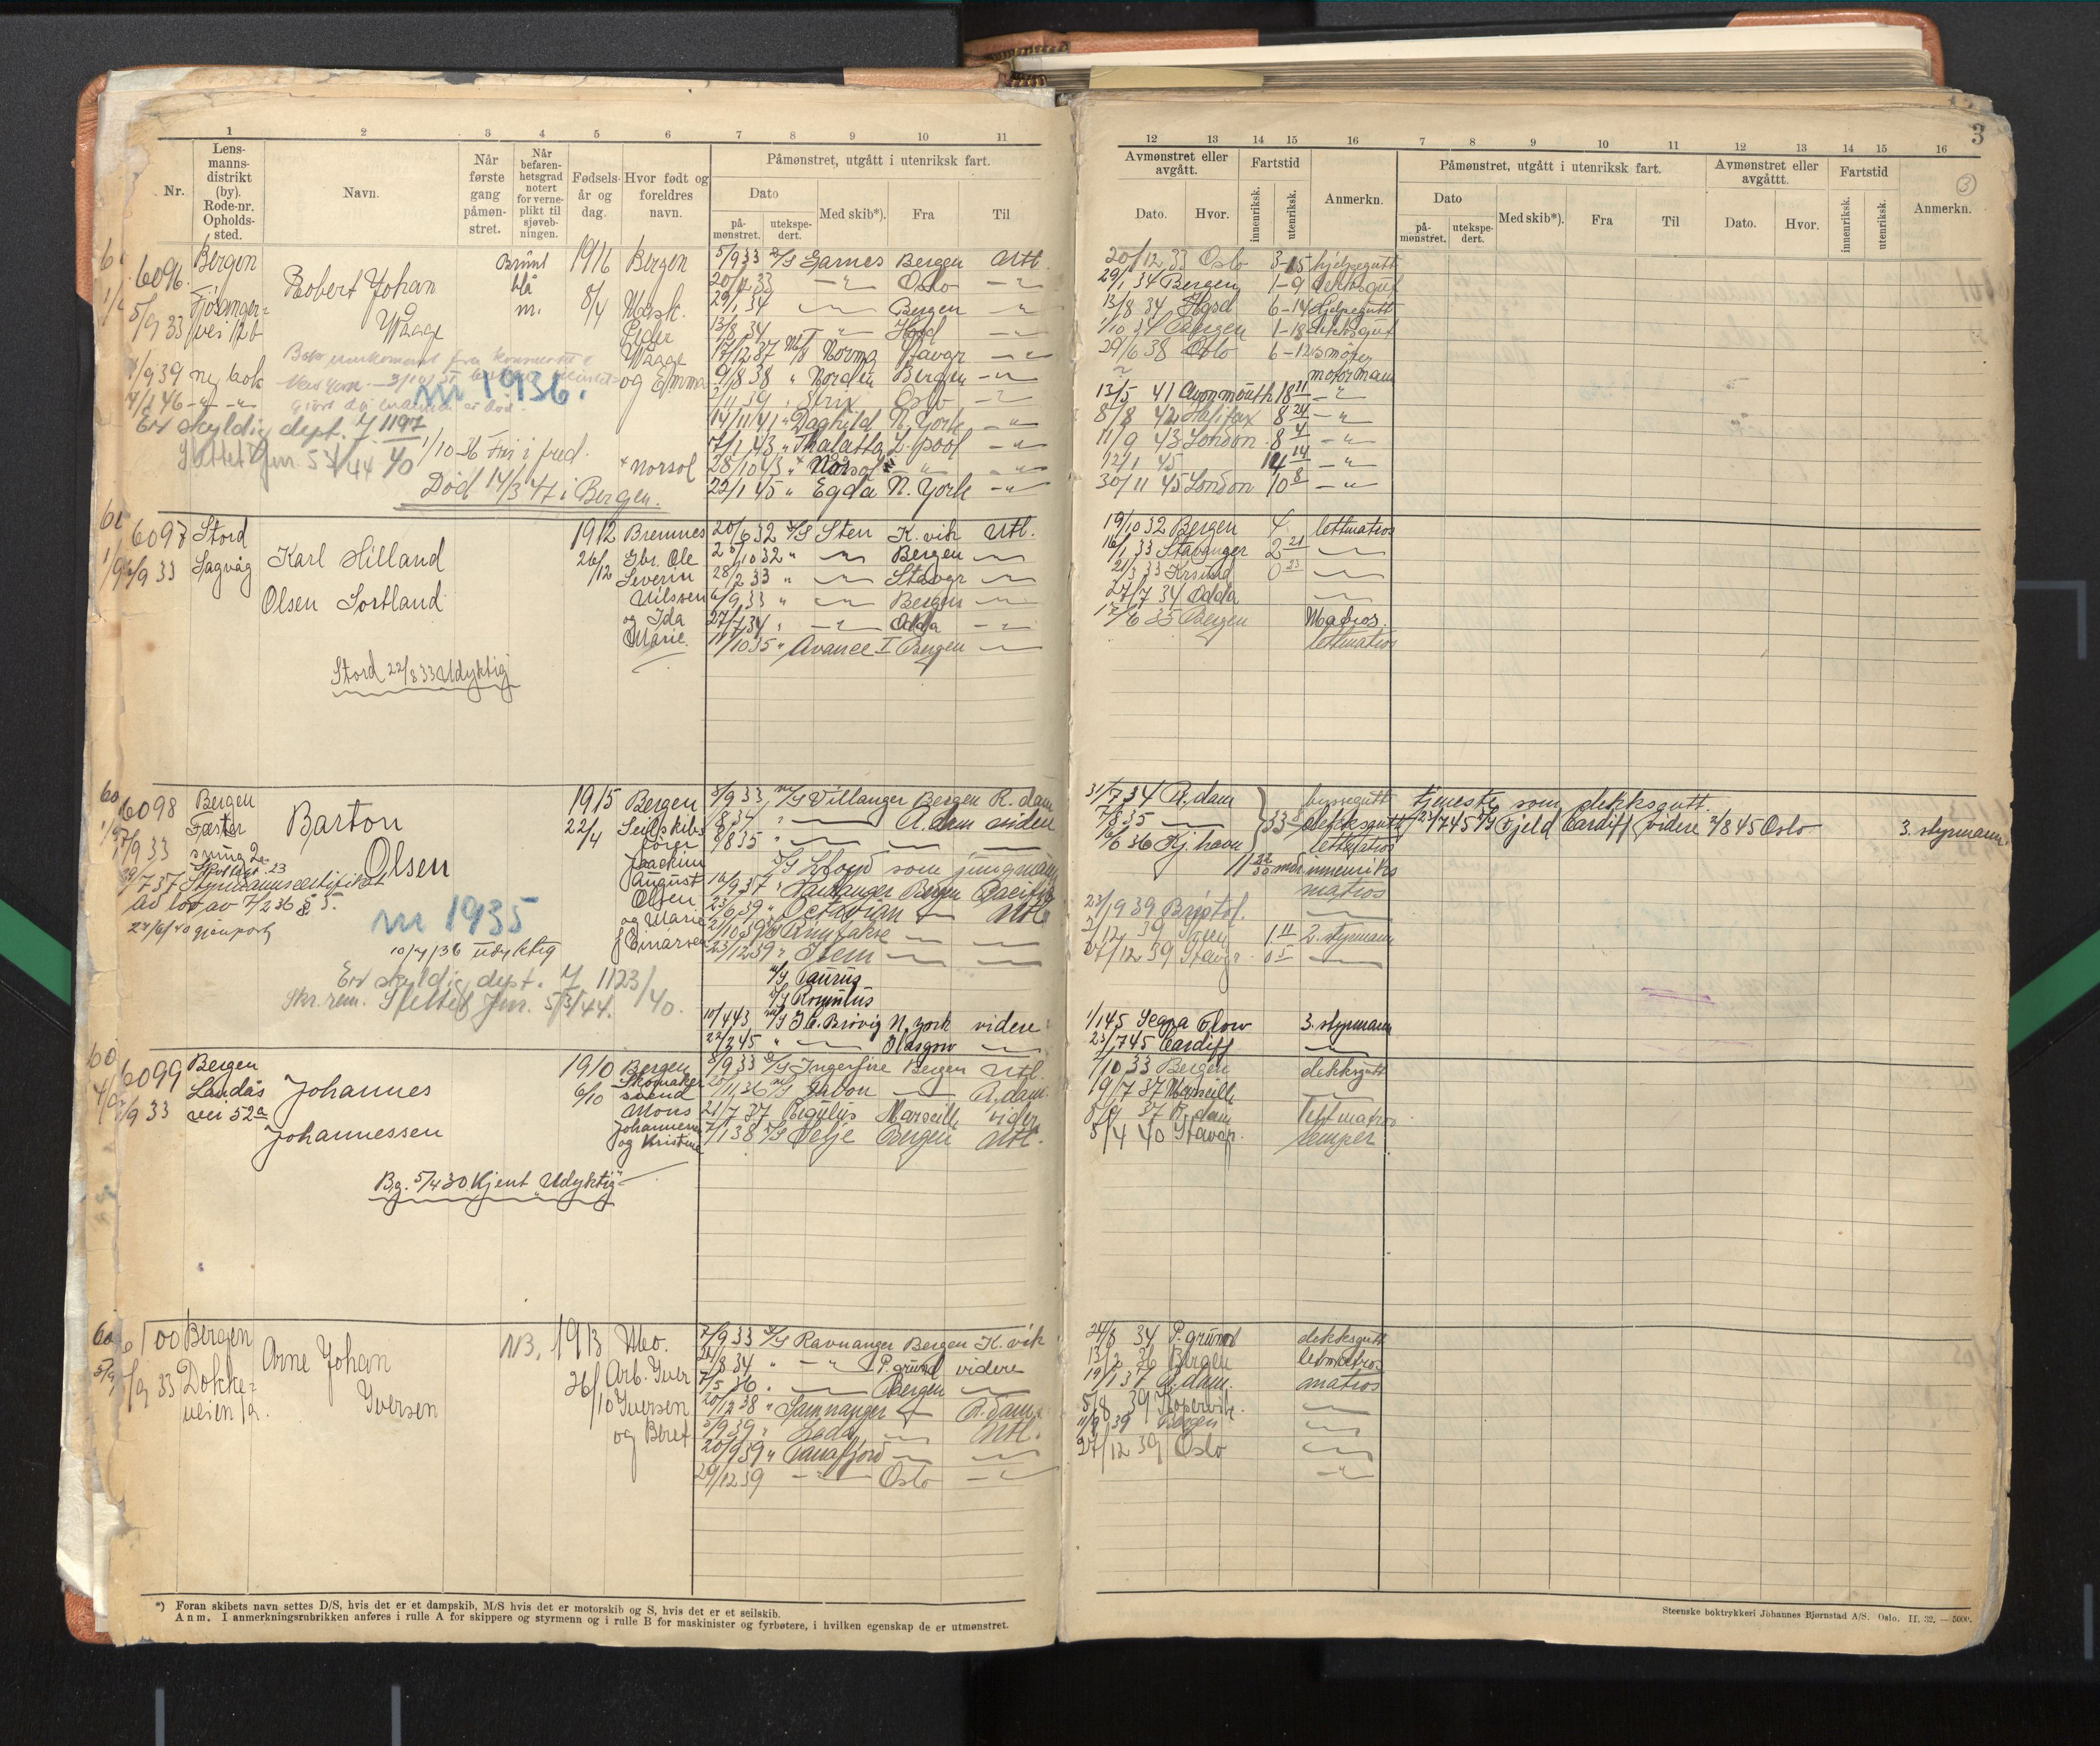 3
③
1 2 3 4 5 6 7 8 9 10 11
Nr.
Lens-
manns-
distrikt
(by).
Rode-nr.
Opholds-
sted.
Navn.
Når
første
gang
påmøn-
stret.
Når
befaren-
hetsgrad
notert
for verne-
plikt til
sjøveb-
ningen.
Fødsels-
år og
dag.
Hvor født og
foreldres
navn.
Påmønstret, utgått i utenriksk fart.
Dato
på-
mønstret.
utekspe-
dert.
Med skib*).
Fra
Til
12 13 14 15 16 7 8 9 10 11 12 13 14 15 16
Avmønstret eller
avgått.
Dato. Hvor.
Fartstid
innenriksk.
utenriksk.
Anmerkn.
Påmønstret, utgått i utenriksk fart.
Dato
på-
mønstret.
utekspe-
dert.
Med skib*).
Fra
Til
Avmønstret eller
avgåttt.
Dato. Hvor.
Fartstid
innenriksk.
utenriksk.
Anmerkn.
6096 Bergen
5/9 33 Fjøsanger-
vei 12b
Robert Johan
Waage
Brunt
blå
m.
1916
8/4
Bergen
Mask.
Peder
Waage
og Emma
1/9 39 ny bok
4/1 46 -"- -"-
nr 1936.
Er skyldig dept. 7. 1197
Slettet Jnr. 53/44 40
1/10-36 Fri i fred.
Død 14/3 47 i Bergen.
5/9 33 D/S Garnes Bergen Utl.
20/12 33 -"- Oslo -"-
29/1 34 -"- Bergen -"-
13/8 34 -"- Hgsd -"-
17/12 37 M/S Norma Stavgr -"-
9/8 38 " Norden Bergen -"-
2/11 39 Oslo -"-
14/11 41 " Daghild N. York -"-
7/1 43 " Thalatta L. pool -"-
+ Norsol 28/10 43 " + Norsol -"- -"-
22/1 45 " Egda N. York -"-
20/12 33 Oslo 3-15 hjelpegutt
29/1 34 Bergen 1-9 dekksgut
13/8 34 Hgsd 6-14 Hjelpegutt
1/10 34 Bergen 1-18 dekksgut
29/6 38 Oslo 6-12 smører
motormann
13/5 41 Avonmouth 18 11 -"-
8/8 42 Halifax 8 24 -"-
11/9 43 London 8 4 -"-
12/1 45 14 14 -"-
30/11 45 London 10 8 -"-
6097 Stord
6/9 33 Sagvåg
Karl Hilland
Olsen Sortland
1912
26/12
Bremnes
Gbr. Ole
Severin
Nilssen
og Ida
Marie.
Stord 22/8 33 Udyktig
20/6 32 D/S Sten K. vik Utl.
25/10 32 " -"- Bergen -"-
28/2 33 " -"- Stavgr -"-
6/9 33 " -"- Bergen -"-
27/7 34 " -"- Odda -"-
11/10 35 " Avance I Bergen -"-
19/10 32 Bergen 4 lettmatros
16/1 33 Stavanger 2 21 -"-
21/3 33 Krsund 0 23 -"-
27/7 34 Odda -"-
17/6 35 Bergen Matros.
lettmatros
6098 Bergen
7/9 33 Fæster
smug 2a
Barton
Olsen
1915
22/4
Bergen
Seilskibs
fører
Joackim
August
Olsen
og Marie
f Einarsen
29/7 37 Styrmannssertifikat
av lov av 7/2 36 § 5.
nr 1935
10/4/36 udyktig
Er skyldig dept. 7 1123/40.
Slettet Jnr. 53/44.
5/9 33 M/S Villanger Bergen R. dam
/8 34 " -"- A. dam videre
9/8 35 " -"- -"- -"-
D/S Lloyd som jungmann
16/9 37 " Taranger Bergen Pacific
23/6 39 " Octavian -"- Utl.
-"- -"-
23/12 39 " Stem -"- -"-
M/S Taurus
D/S Romulus
10/4 43 M/S G.C. Brøvig N. York videre
22/2 45 " -"- Glasgow -"-
31/7 34 A. dam byssegutt
7/8 35 -"- 33 dekksgutt
6/6 36 Kj. havn lettmatros
11 22/30 mdr. innenriks
matros
23/9 39 Bristol. -"-
2/12 39 1 11 2. styrmann
27/12 39 Stavgr. 0 5 -"-
1/1 45 Scapa Flow 3. styrmann
23/7 45 Cardiff -"-
tjeneste som dekksgutt.
23/7 45 D/S Fjeld Cardiff videre 2/8 45 Oslo 3. styrmann
6099 Bergen
8/9 33 Landås
vei 52a
Johannes
Johannessen
1910
6/10
Bergen
Skomaker
svend
Mons
Johannessen
og Kristine
Bg. 5/4 30 Kjent "Udyktig"
8/9 33 D/S Ingerfire Bergen Utl.
20/11 36 M/S Gabon -"- A. dam
21/7 37 Regulus Marseille videre
7/1 38 D/S Selje Bergen Utl.
7/10 33 Bergen dekksgutt
19/7 37 Marseille -"-
8/9 37 R. dam Lettmatros
8/4 40 Stavgr. lemper
6100 Bergen
8/9 33 Dokke-
veien 1a.
Arne Johan
Iversen
NB.
1913
26/10
Mo.
Arb. Iver
Iversen
og Beret
7/9 33 D/S Ravnanger Bergen K. vik
24/8 34 " -"- P. grund videre
7/5 36 " -"- Bergen -"-
20/12 38 " Samnanger -"- A. dam
5/9 39 " Leda -"- Utl.
20/9 39 " Tanafjord -"- -"-
29/12 39 -"- Oslo -"-
24/8 34 P. grund dekksgutt
13/2 36 Bergen letmatros
19/1 37 A. dam. matros
5/8 39 Kopervik. -"-
11/9 39 Bergen -"-
27/12 39 Oslo -"-
-"-
*) Foran skibets navn settes D/S, hvis det er et dampskib, M/S hvis det er motorskib og S, hvis det er et seilskib.
Anm. I anmerkningsrubrikken anføres i rulle A for skippere og styrmenn og i rulle B for maskinister og fyrbøtere, i hvilken egenskap de er utmønstret.
Steenske boktrykkeri Johannes Bjørnstad A/S. Oslo. II. 32. — 5000.